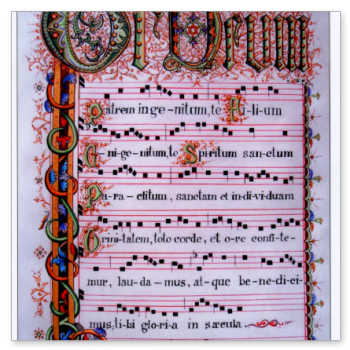 Te Deum
Patrem inge-nitum, te Filium
Uni-ge-nitum, te Spiritum sanctum
Para-clitum, sanctam et in-di-viduam
Trinitatem, toto corde, et o-re confite-
mur, lau-da-mus, at-que be-ne-dici-
mus, ti-bi glo-ri-a in sæcula.